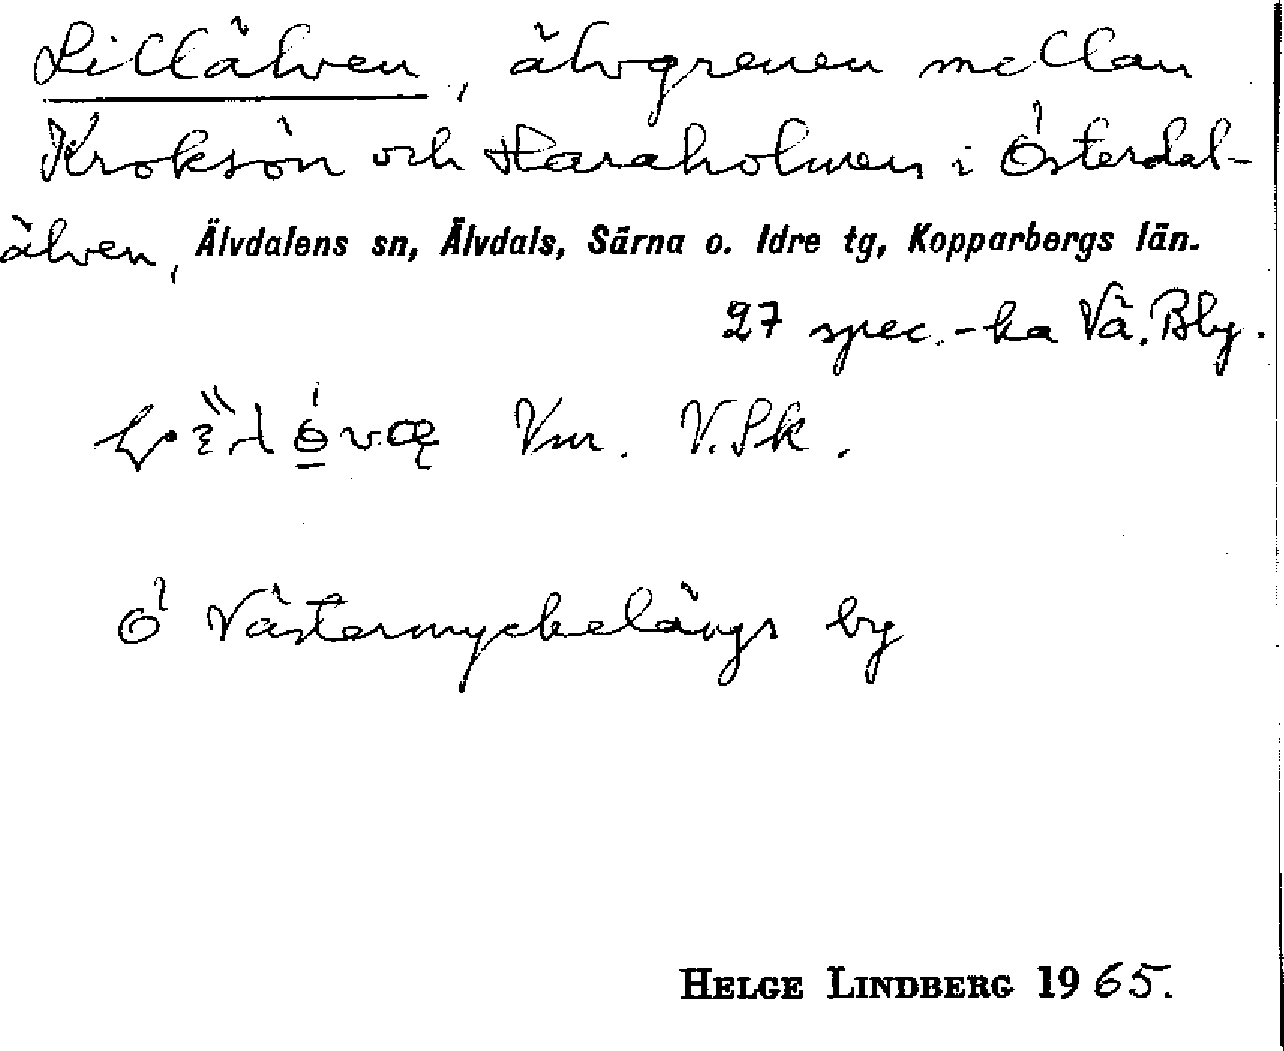 Lillälven, älvgrenen mellan
Kroksön och Haraholmen i Österdal-
älven, Älvdalens sn, Älvdals, Särna o. Idre tg, Kopparbergs län.
27 spec.-ka Vä. Bly.
Vm. V.Sk.
Ö Västermyckelängs by
HELGE LINDBERG 1965.